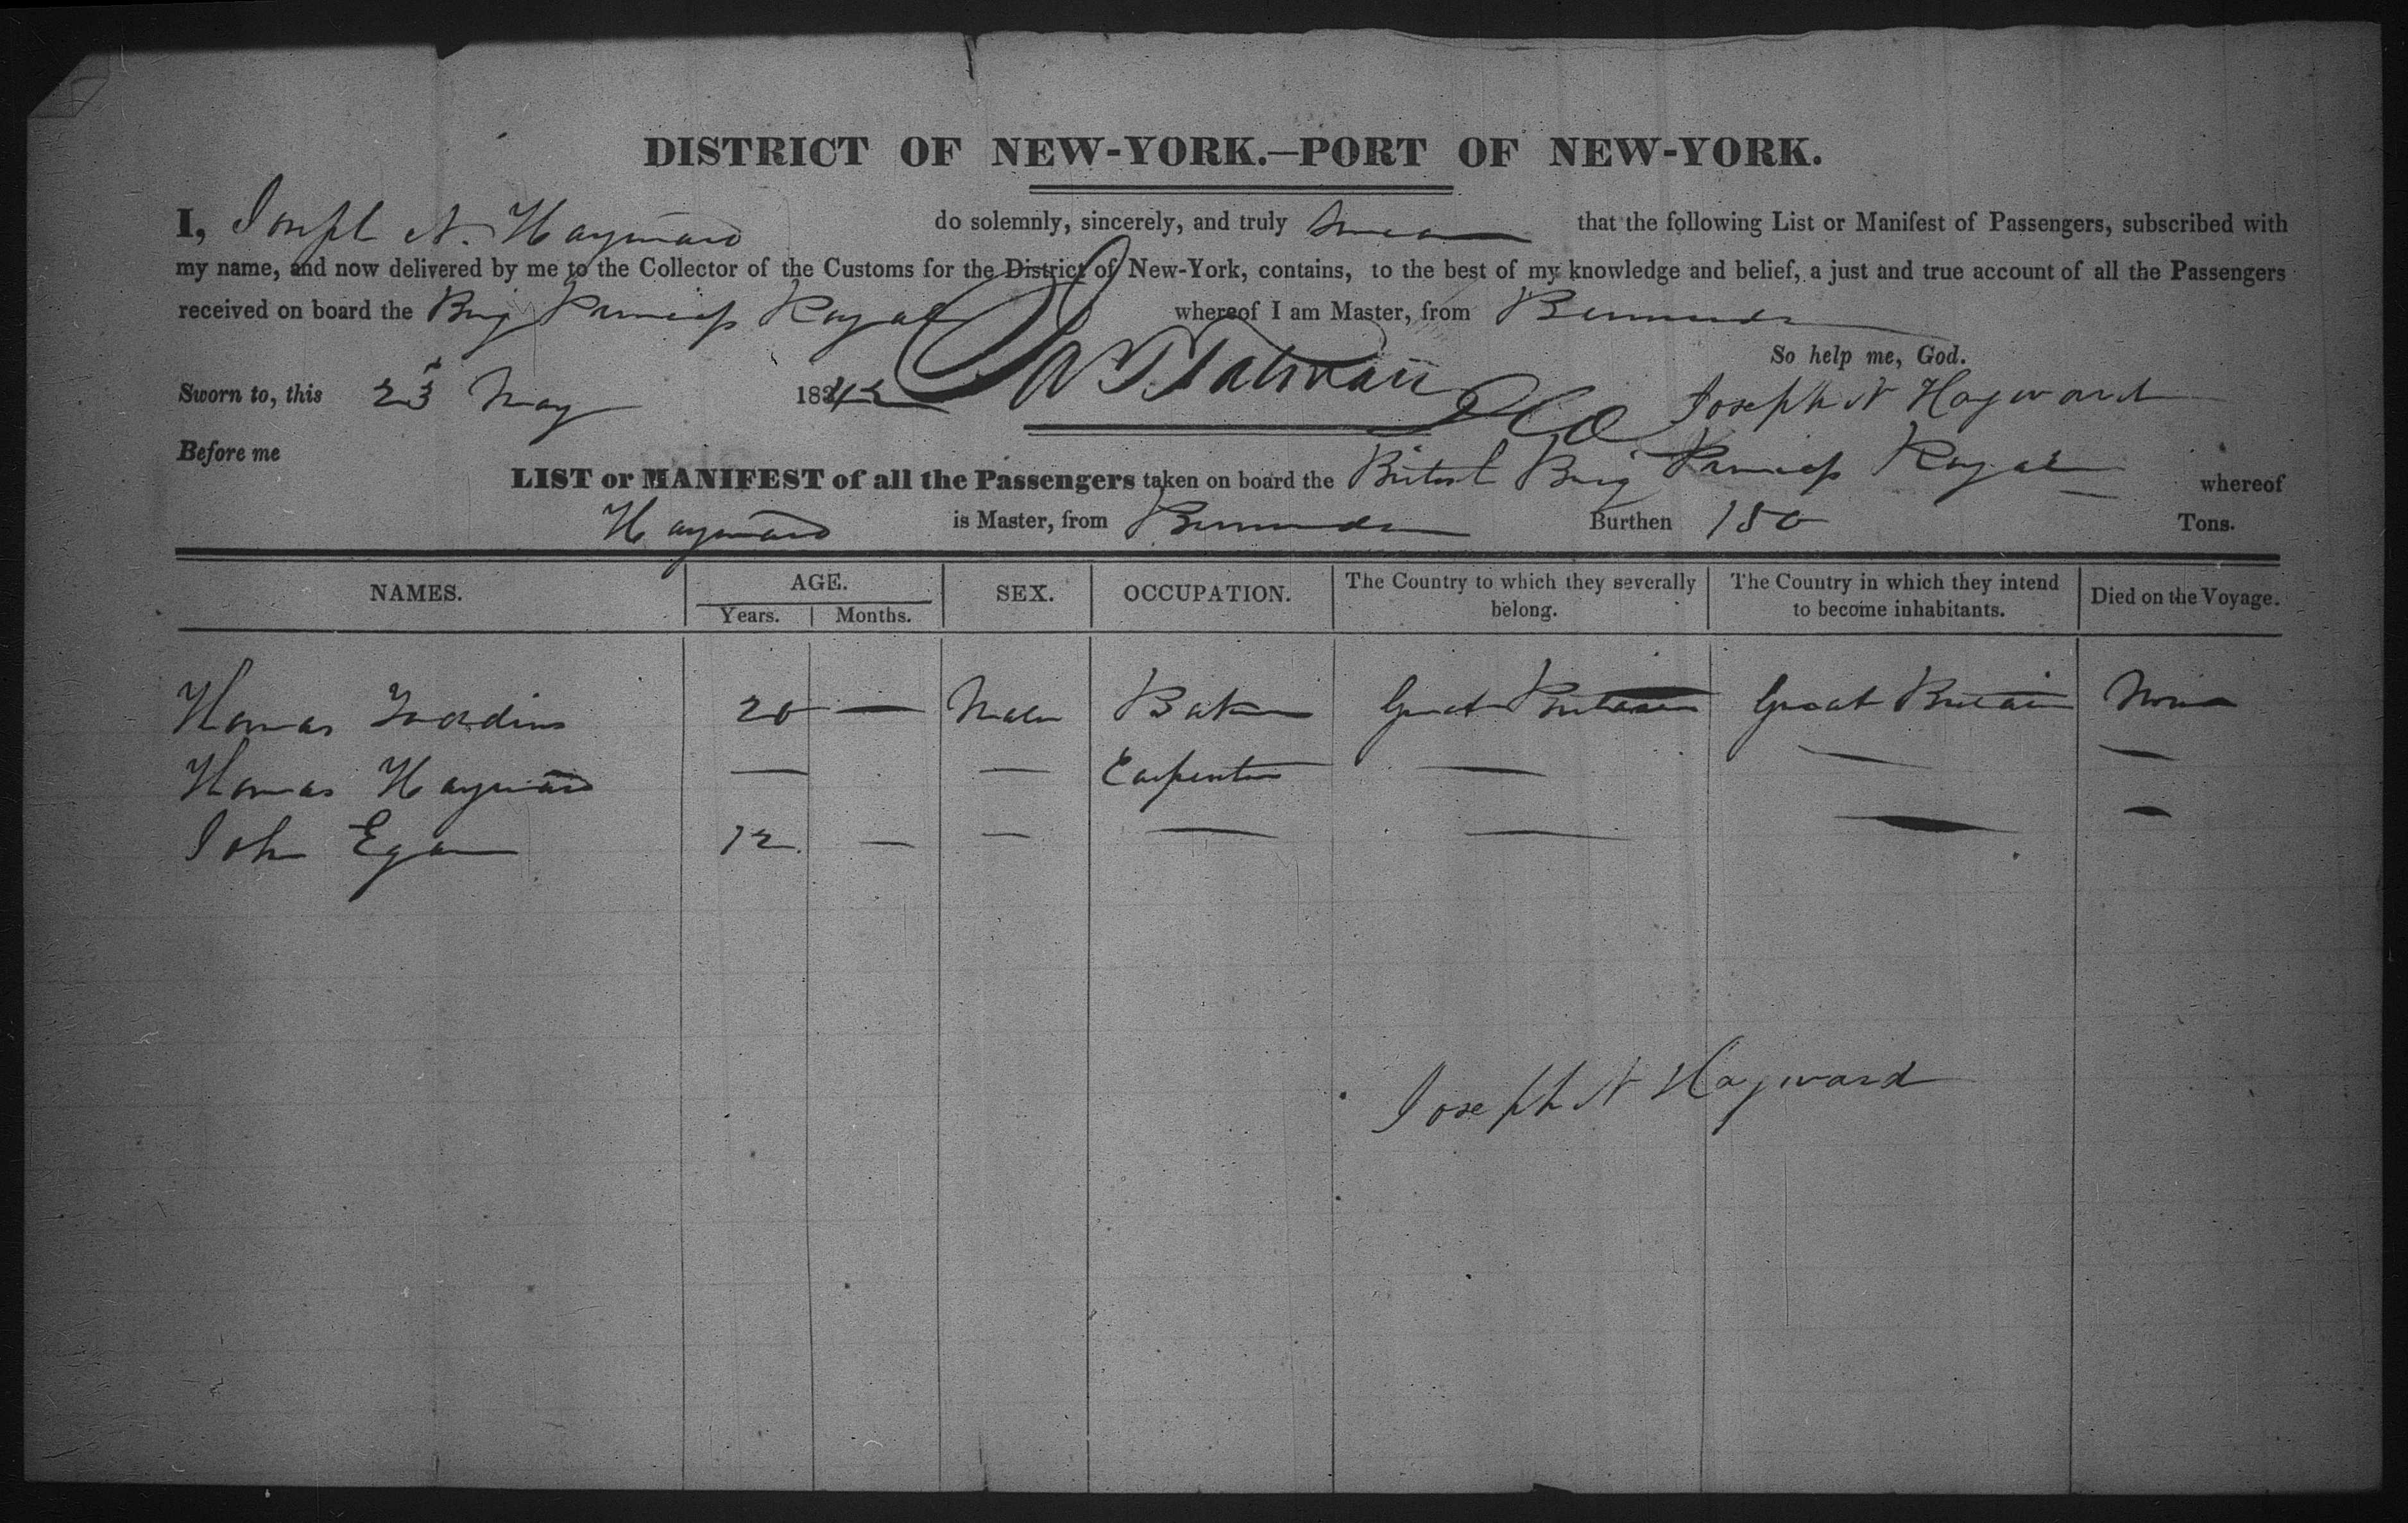 DISTRICT OF NEW-YORK.—PORT OF NEW-YORK.
I, Joseph N. Hayward do solemnly, sincerely, and truly swear that the following List or Manifest of Passengers, subscribed with
my name, and now delivered by me to the Collector of the Customs for the District of New-York, contains, to the best of my knowledge and belief, a just and true account of all the Passengers
received on board the Brig Princess Royal whereof I am Master, from Bermuda
So help me, God.
Sworn to, this 23 May 1842 Joseph N Hayward
Before me
LIST or MANIFEST of all the Passengers taken on board the British Brig Princess Royal whereof
Hayward is Master, from Bermuda Burthen 150 Tons.
NAMES. AGE. SEX. OCCUPATION. The Country to which they severally belong. The Country in which they intend to become inhabitants. Died on the Voyage.
Years. Months.
Thomas 20 — Male Baker Great Britain Great Britain None
Thomas Hayward — — Carpenter — — —
John Egan 12 — — — — — —
Joseph N Hayward